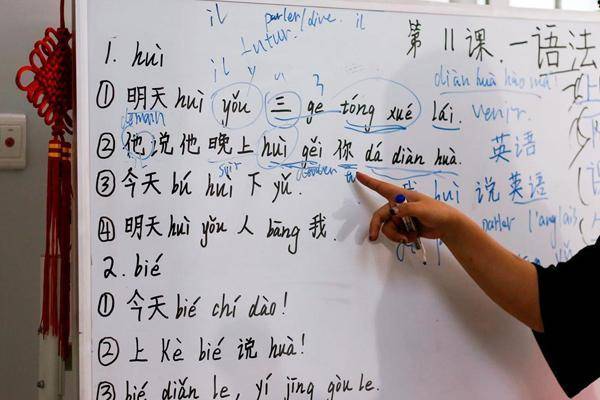 il parler/dire. il
futur.
第 11 课. 一语法
1. huì
il y a
diàn huà hào mǎ
① 明天 huì yǒu 三 ge tóng xué lái. venir.
demain
② 他 说 他 晚上 huì gěi 你 dá diàn huà. 英语
soir
③ 今天 bú huì 下 yǔ. huì 说 英语
parler l'anglais
④ 明天 huì yǒu 人 bāng 我.
2. bié
① 今天 bié chí dào!
② 上 Kè bié 说 huà!
③ bié diǎn le, yí jīng gòu le.